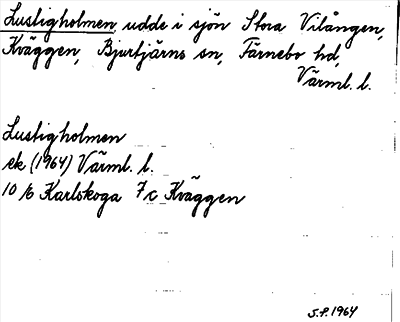 Lustigholmen, udde i sjön Stora Vilången,
Kväggen, Bjurtjärns sn, Färnebo hd,
Värml. l.
Lustigholmen
ek (1964) Värml. l.
10 E Karlskoga 7c Kväggen
S.P. 1964